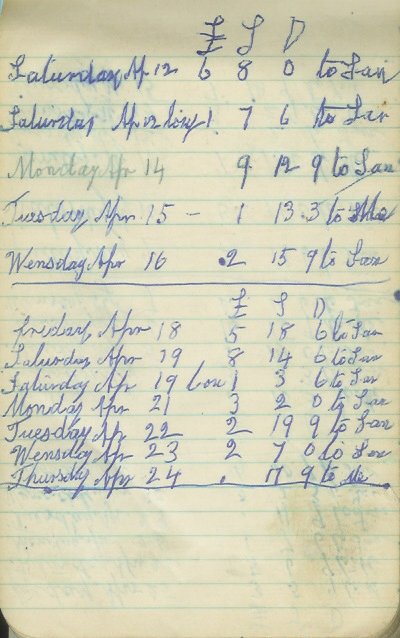 £ S D
Saturday Apr 12 6 8 0 to San
Saturday Apr 12 1 7 6 to San
Monday Apr 14 9 12 9 to San
Tuesday Apr 15 - 1 13.3 to
Wensday Apr 16 2 15 9 to San
£ S D
Freday Apr 18 5 18 6 to San
Saturday Apr 19 8 14 6 to San
Saturday Apr 19 1 3 6 to San
Monday Apr 21 3 2 0 to San
Tuesday Apr 22 2 19 9 to San
Wensday Apr 23 2 7 0 to San
Thursday Apr 24 . 17 9 to Me